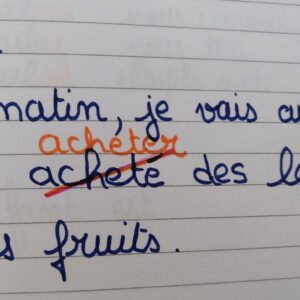 matin, je vais au
acheter
acheté des lé
fruits.